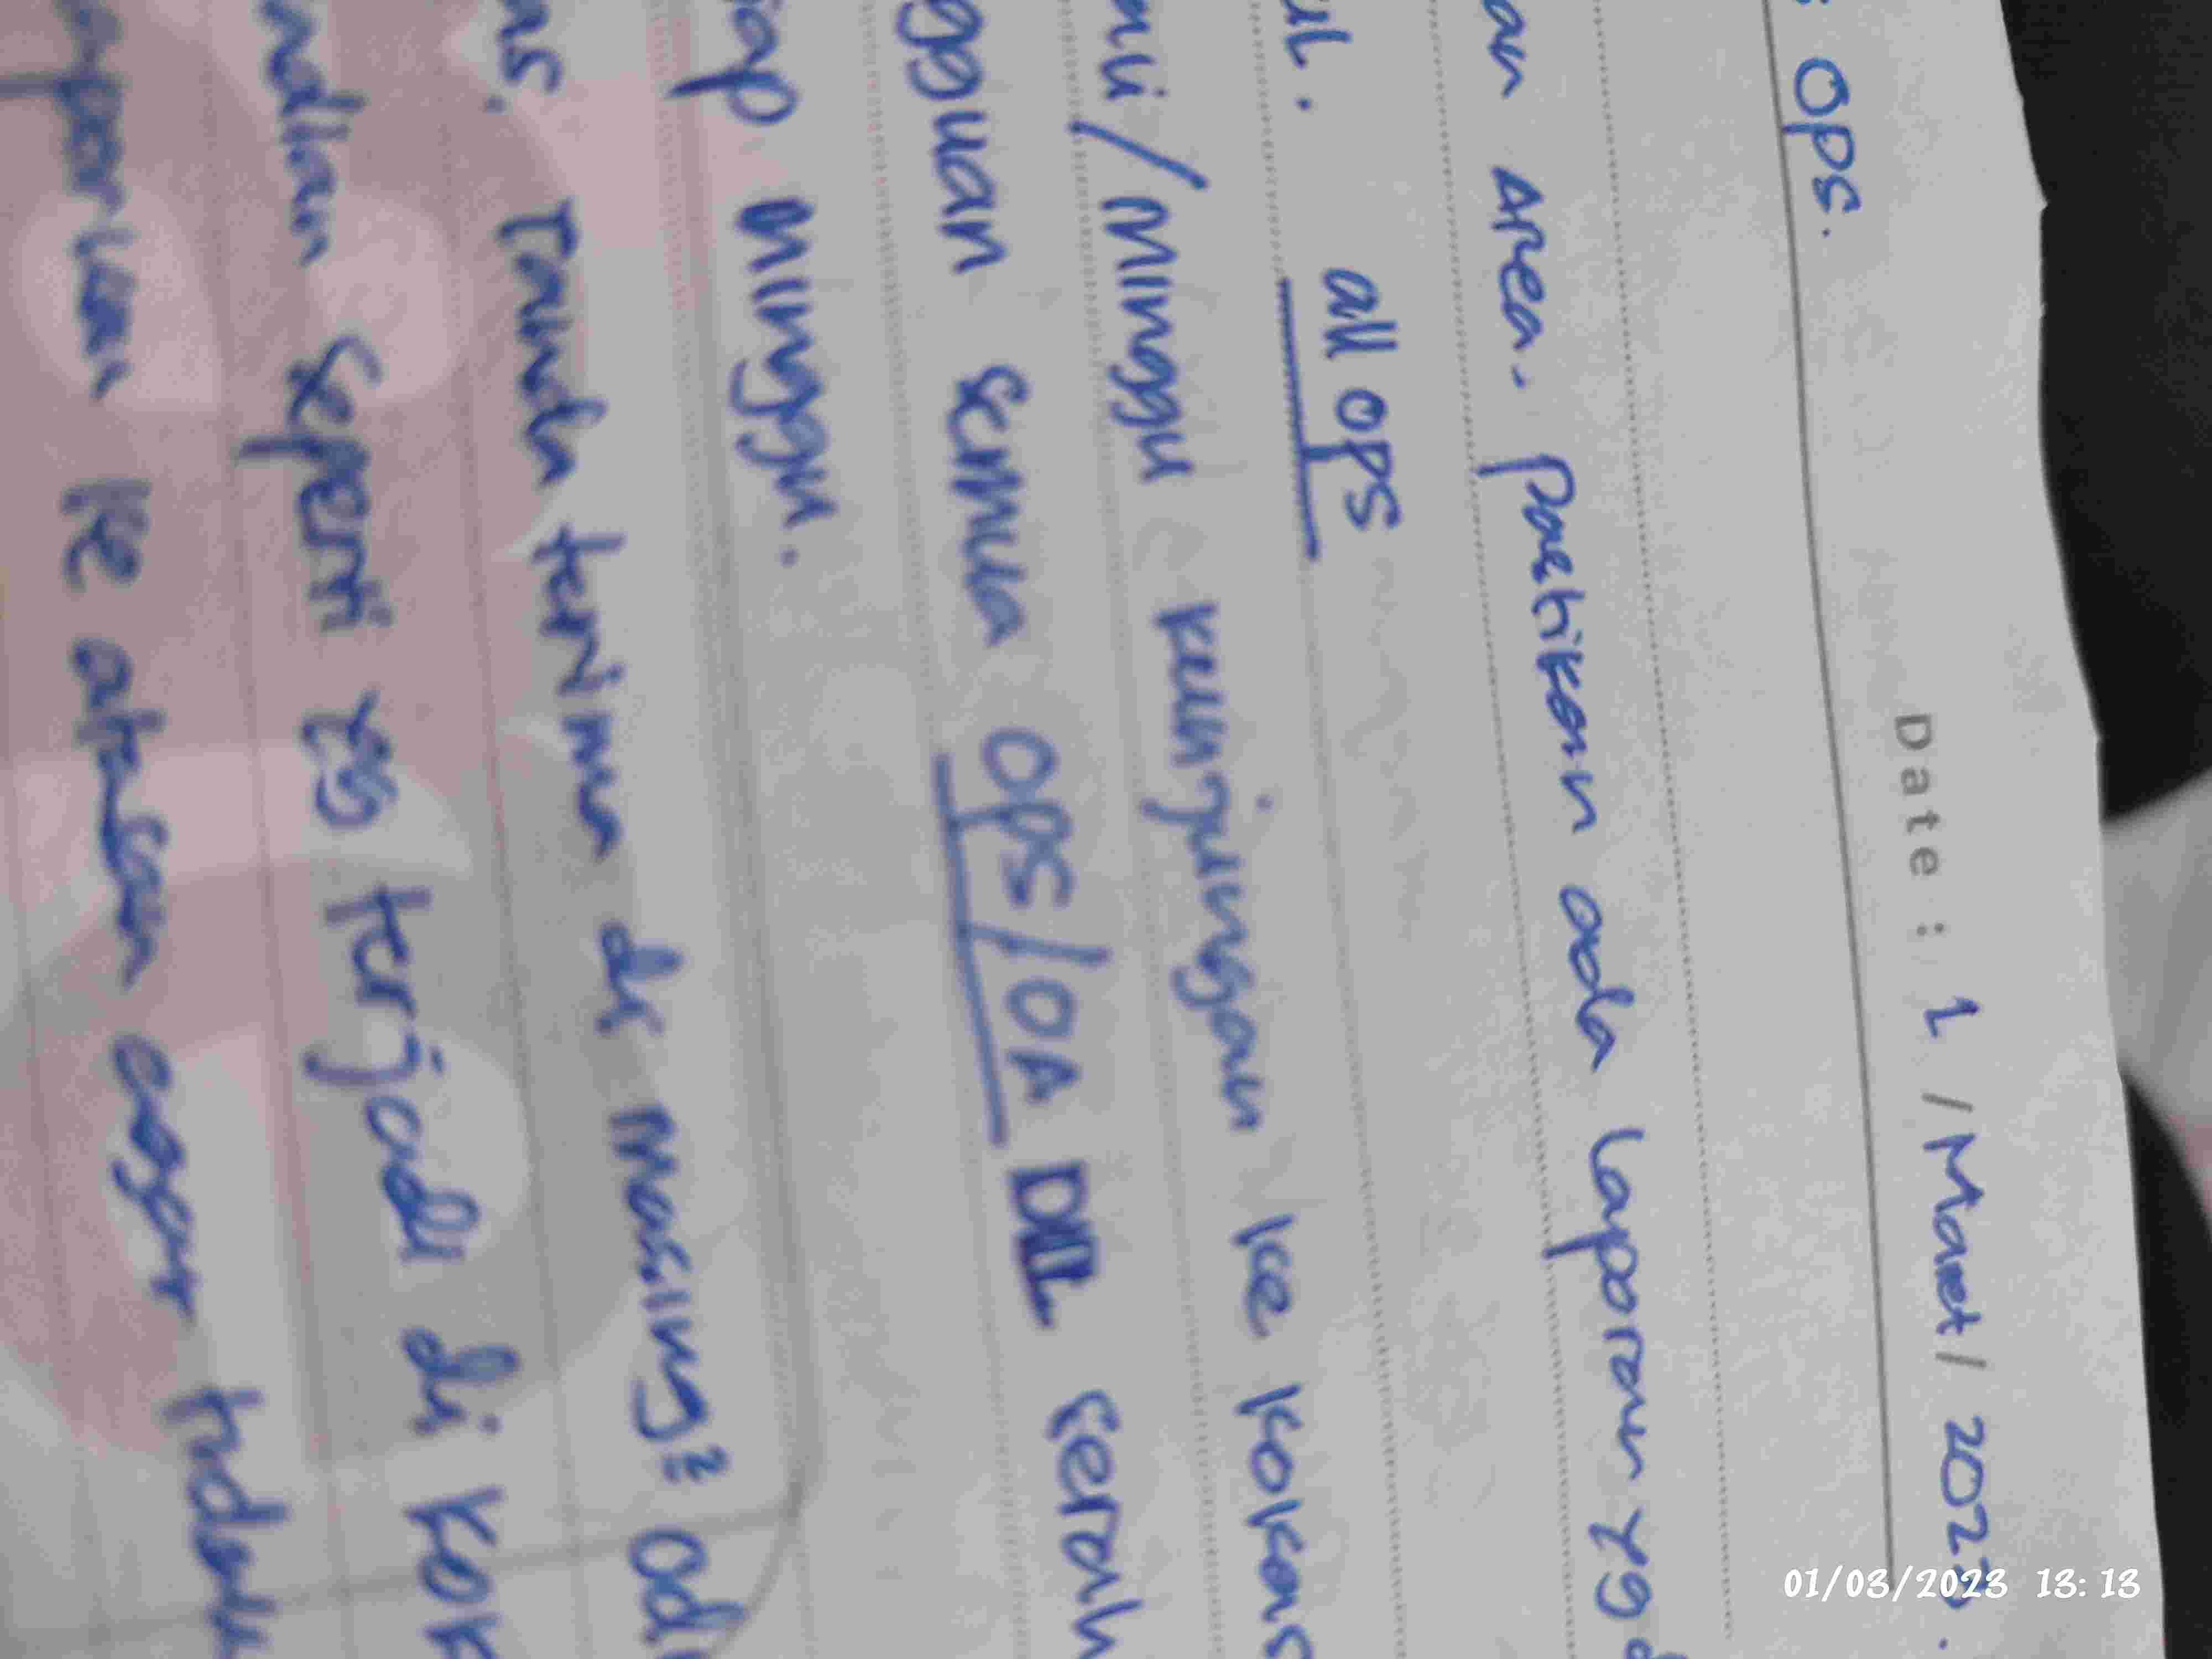 Date : 1 / Maret / 2023.
: OPS.
an Area. Pastikan ada Laporan yg
UL. all OPS
mi/Minggu kunjungan ke kokas
ggunan semua OPS/OA DIL serah
iap Minggu.
ns. Tanda terima di masing²
ndian seperti yg terjadi di
ke atasan agar tidak
01/03/2023 13:13